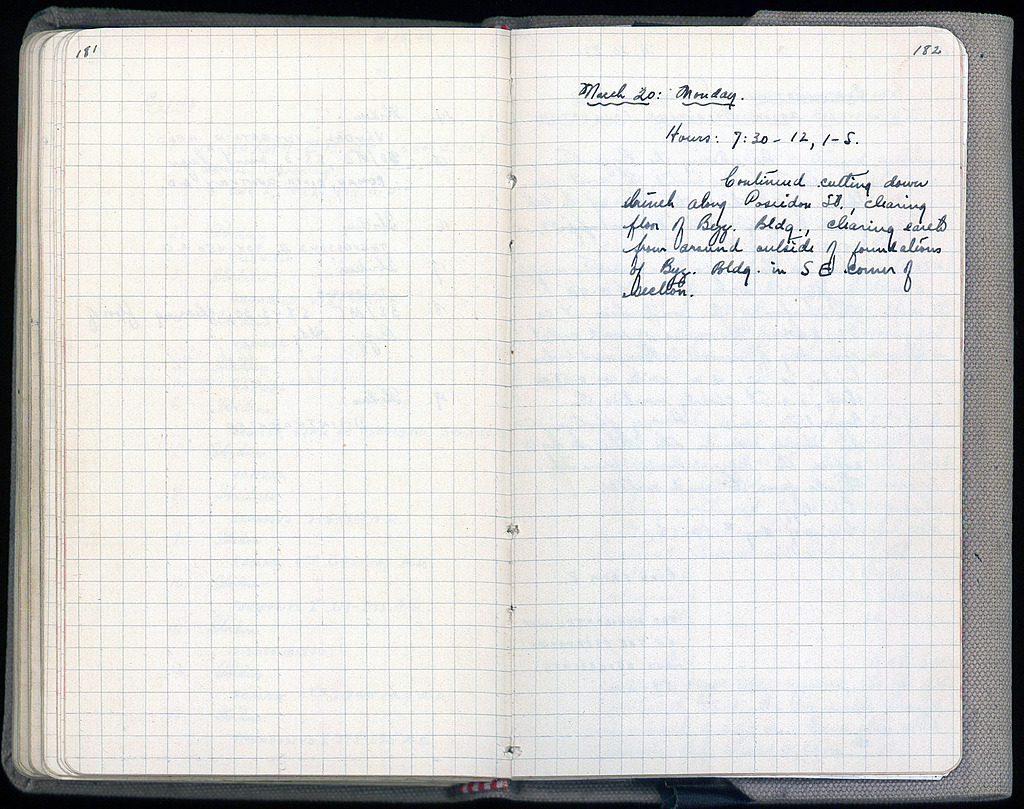 181
182
March 20: Monday.
Hours: 7:30 - 12, 1-5.
Continued cutting down
trench along Poseidon St., clearing
floor of Byz. Bldg., clearing earth
from around outside of foundations
of Byz. Bldg. in SE corner of
section.